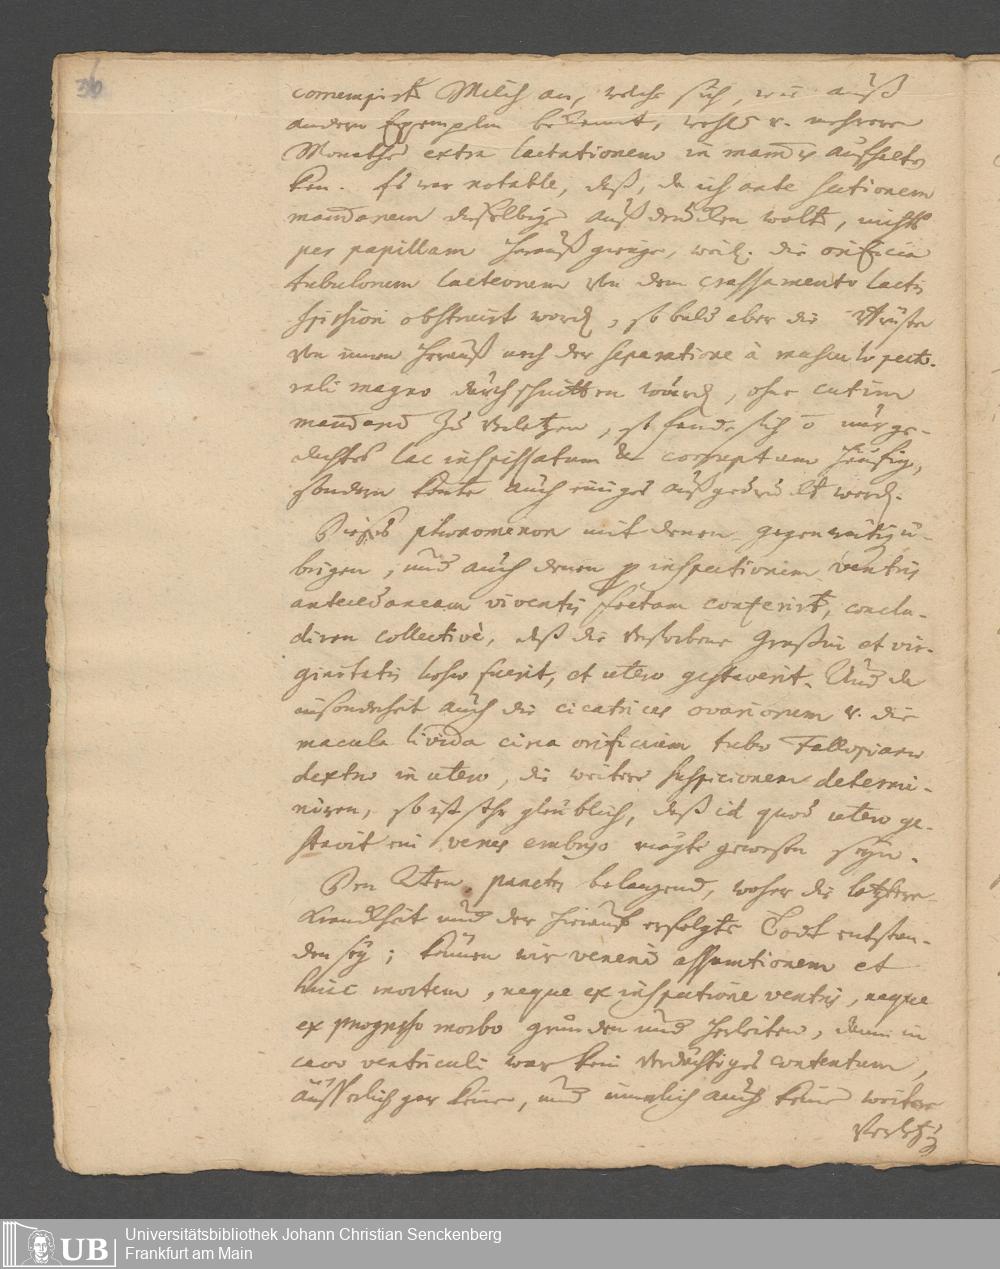 36
corrumpirte Milch an, welche sich, wie auß
andern Exemplen bekannt, wohl v. mehrere
Monathe extra lactationem in mamis aufhalten
kan. Es war notable, daß, da ich ante sectionem
mammarum dieselbige außdrucken wolte, nichts
per papillam herauß gienge, weil. die orificia
tubulorum lacteorum von dem crassamento lactis
obstruirt word, so bald aber die Brüste
von innen herauß nach der separatione à musculo pecto-
rali magno durchschnitten wurd, ohne cutim
zu verletzen, so fande sich nur ge-
dachtes lac inspissatum & corruptum häufig,
sondern konte auch einiges außgedruckt werd.
Dieses phenomenon mit denen gegenwärtig ü-
brigen, und auch denen inspectionem ventris
antecedaneam viventis conferirt, conclu-
diren collectivè, daß die verstorbene et vir-
ginitatis fuerit, et utero gestaverit. Und da
insonderheit auch die cicatrices ovariorum v. die
macula livida circa orificium tubo Fallopiano
dextro in utero, die weitere suspicionem determi-
niren, so ist sehr glaublich, daß id quod utero ge-
stavit ein embryo mögte gewesen seyn.
Den 2ten puncten belangend, woher die letztere
Kranckheit und der hierauf erfolgte Todt entstan-
den sey; können wir veneni assumtionem et
huic mortem, neque ex inspectione ventris, neque
ex progresso morbo gründen und herleiten, dann in
cavo ventriculi war kein verdächtiges contentum,
äusserlich gar keine, und innerlich auch keine weitere
Universitätsbibliothek Johann Christian Senckenberg
Frankfurt am Main
UB